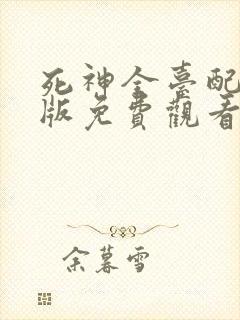 死神全臺配
版免費觀看
余暮雪